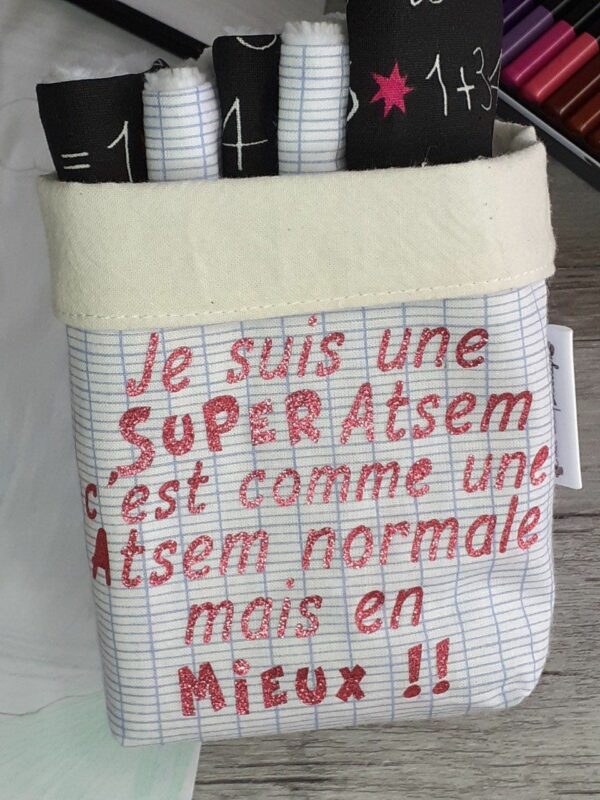 = 1
4
1+3
Je suis une
SUPER Atsem
c'est comme une
Atsem normale
mais en
Mieux !!